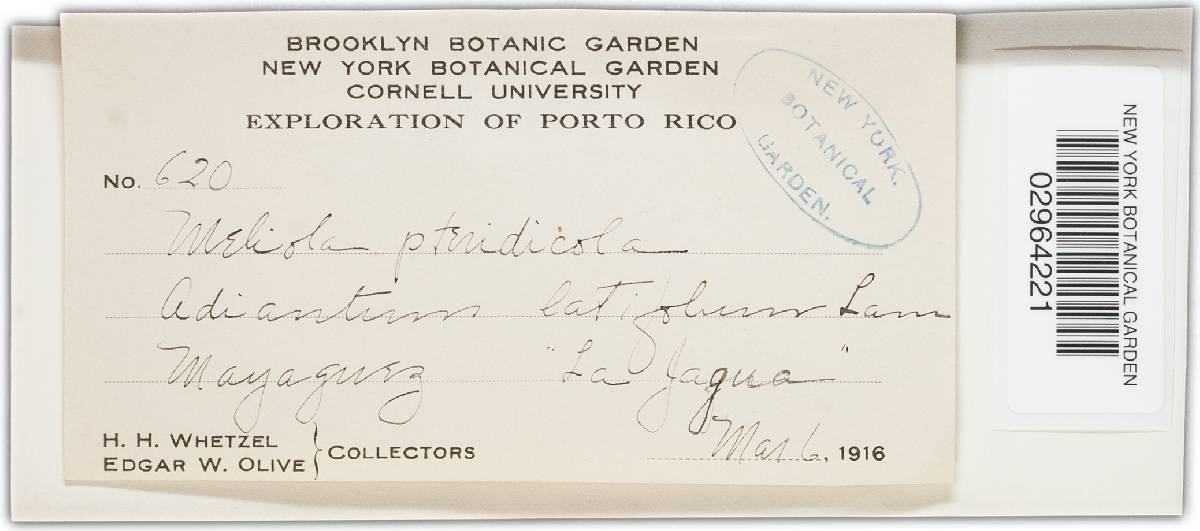 BROOKLYN BOTANIC GARDEN
NEW YORK BOTANICAL GARDEN
CORNELL UNIVERSITY
EXPLORATION OF PORTO RICO
NEW YORK.
BOTANICAL
GARDEN.
No. 620
Meliola pteridicola
Adiantum latifolium Lam
Mayaguez "La Jagua"
H. H. WHETZEL
EDGAR W. OLIVE } COLLECTORS
Mar 6, 1916
NEW YORK BOTANICAL GARDEN
02964221